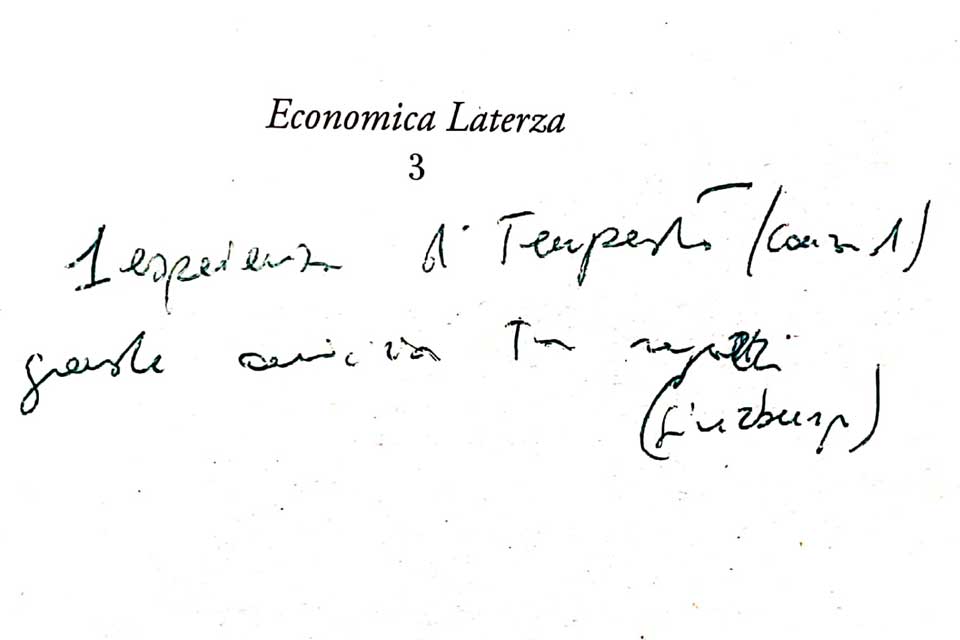 Economica Laterza
3
1 esperienza di Tempesta (Conrad)
grande amicizia tra ragazzi
(Ginzburg)